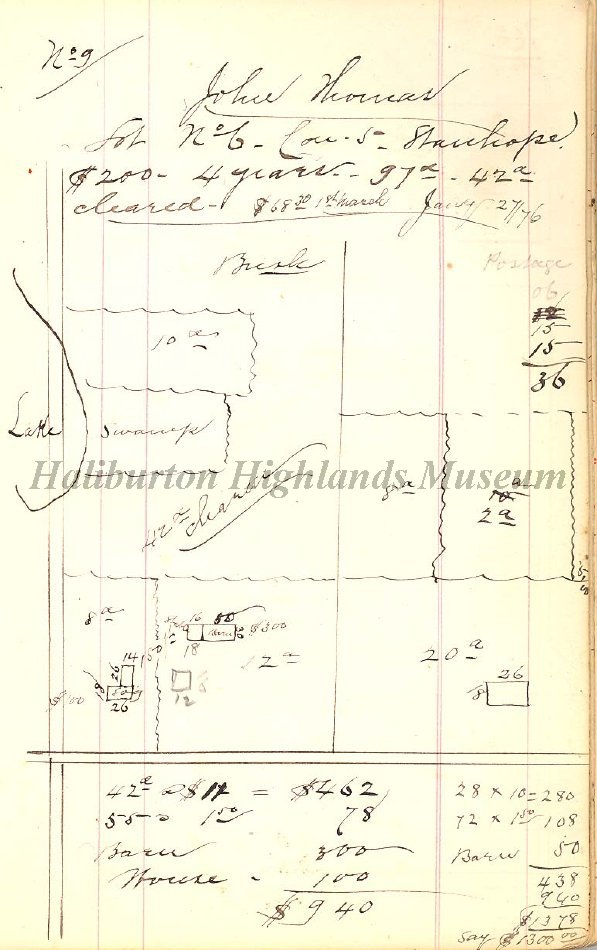 No 9
John Thomas
Lot No 6 - Con. 5 - Stanhope
$200 - 4 years - 97a - 42a
cleared - $68 30 1st March Jany 27/76
Bush
Postage
06
15
15
36
10 a
Lake
Swamp
Haliburton Highlands Museum
42a cleared
8a
2a
8a
16 50
$300
18
150
14
26
$100
26
12
12a
20a
26
18
42a @ $11 = $462
55 @ 1 50 78
Barn 300
House - 100
$940
28 x 10 = 280
72 x 1 50 108
Barn 50
438
940
$1378
say $1300 00